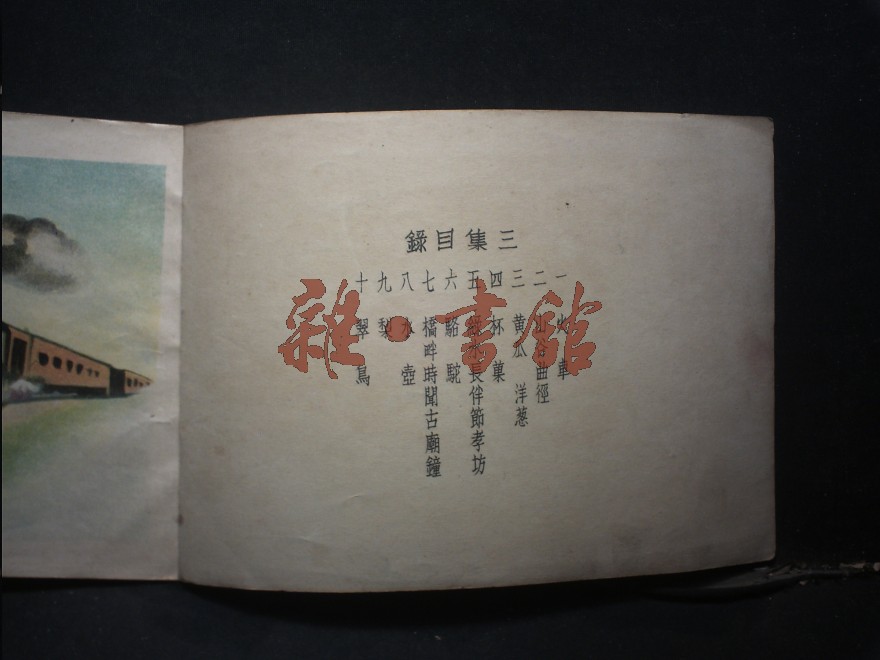 三集目錄
一 火車
二 山谷曲徑
三 黃瓜 洋葱
四 杯菓
五 綠水長伴節孝坊
六 駱駝
七 橋畔時聞古廟鐘
八 水壺
九 梨
十 翠鳥
雜·書館